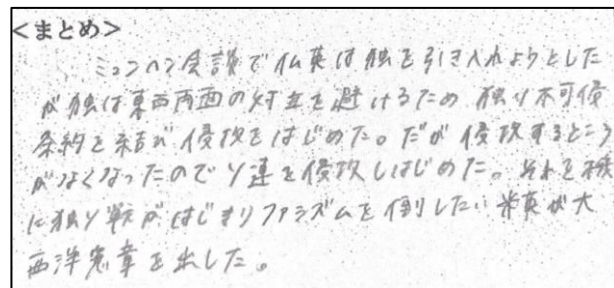 <まとめ>
ミュンヘン会議で仏英は独を引き入れようとした
が独は東西両面の対立を避けるため 独ソ不可侵
条約を結び 侵攻をはじめた。だが 侵攻するところ
がなくなったのでソ連を侵攻しはじめた。それを機
に独ソ戦がはじまりファシズムを倒したい米英が大
西洋憲章を出した。